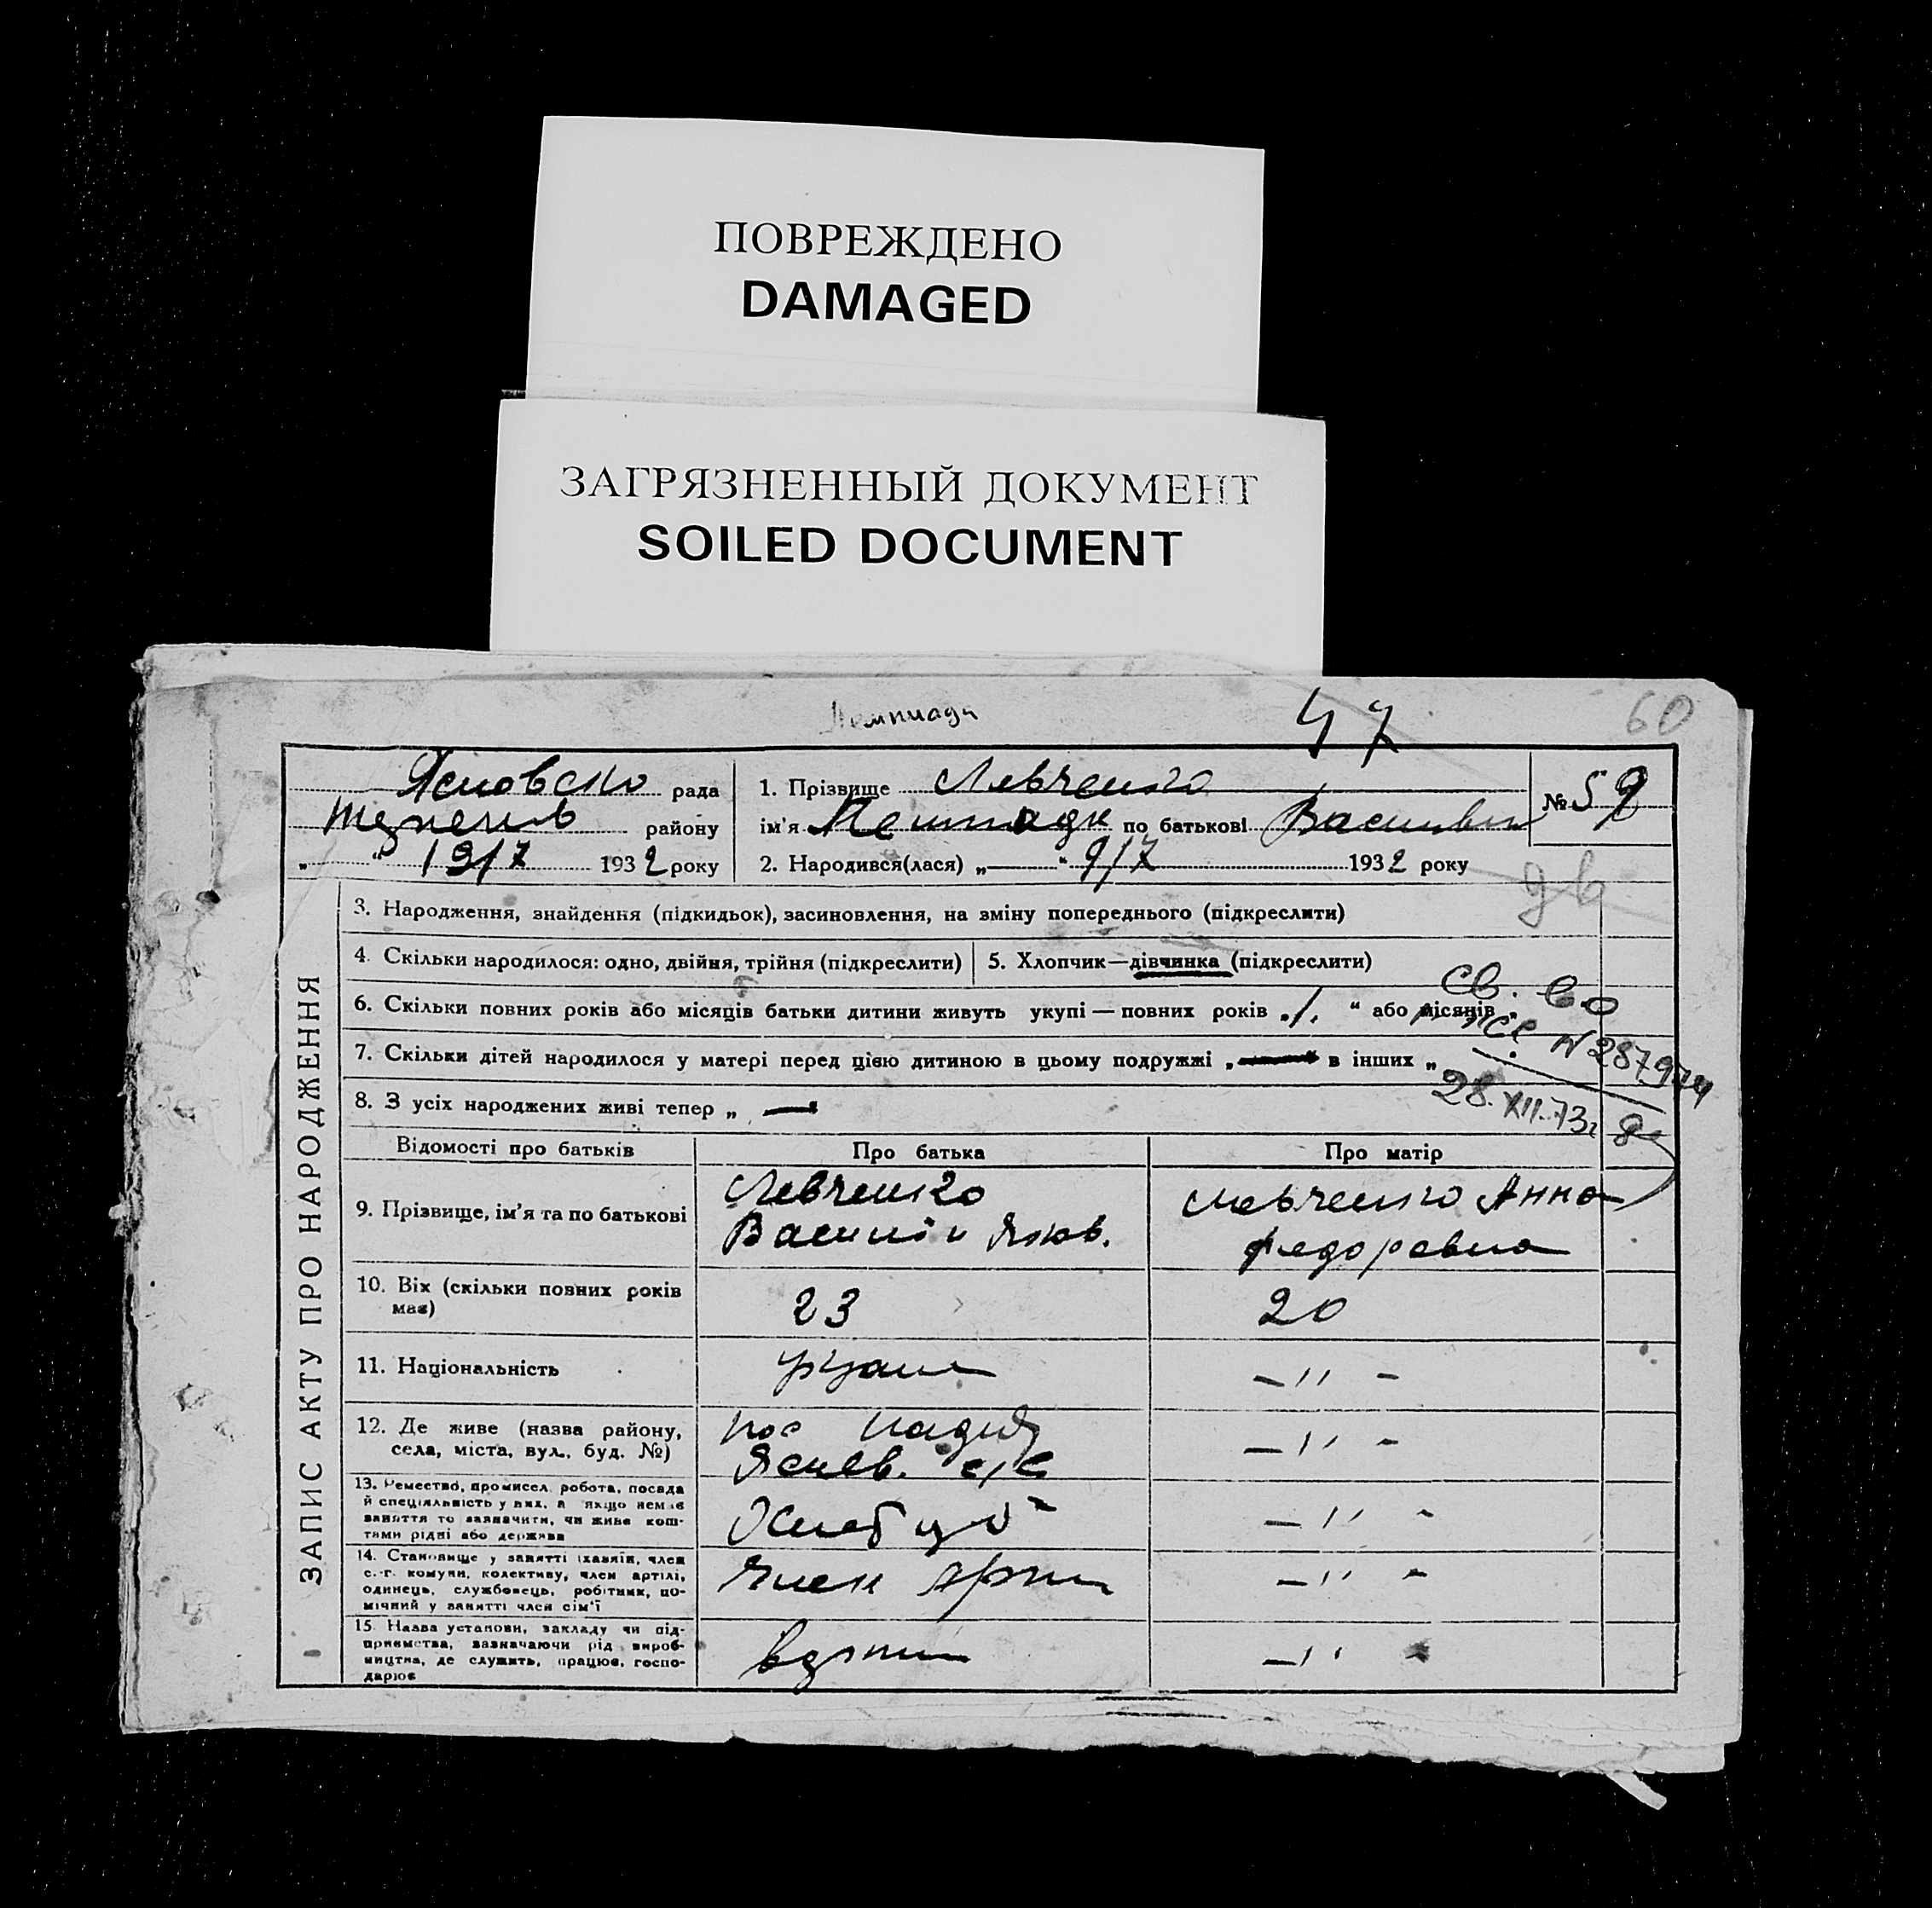 ПОВРЕЖДЕНО
DAMAGED
ЗАГРЯЗНЕННЫЙ ДОКУМЕНТ
SOILED DOCUMENT
47
60
рада
району
" " 19/7 1932 року
1. Прізвище Левченко
ім'я по батькові
2. Народився(лася) „ — " 9/7 1932 року
№ 59
3. Народження, знайдення (підкидьок), засиновлення, на зміну попереднього (підкреслити)
4. Скільки народилося: одно, двійня, трійня (підкреслити)
5. Хлопчик—дівчинка (підкреслити)
6. Скільки повних років або місяців батьки дитини живуть укупі — повних років „ 1. " або місяців „
7. Скільки дітей народилося у матері перед цією дитиною в цьому подружжі „ — " в інших „
8. З усіх народжених живі тепер „ —
Св. во
28.XII.73г
ЗАПИС АКТУ ПРО НАРОДЖЕННЯ
Відомості про батьків
Про батька
Про матір
9. Прізвище, ім'я та по батькові
Левченко
Яков.
Левченко Анна
Федоровна
10. Віх (скільки повних років
має)
23
20
11. Національність
— " —
12. Де живе (назва району,
села, міста, вул., буд. №)
пос
с/с
— " —
13. Ремество, промисел, робота, посада
й спеціяльність у них, а якщо немає
заняття то зазначити, чи живе кош-
тами рідні або держава
— " —
14. Становище у занятті (хазяїн, член
с.-г. комуни, колективу, член артілі,
одинець, службовець, робітник, по-
мічний у занятті член сім'ї
Член
— " —
15. Назва установи, закладу чи під-
приємства, зазначаючи рід вироб-
ництва, де служить, працює, госпо-
дарює
— " —